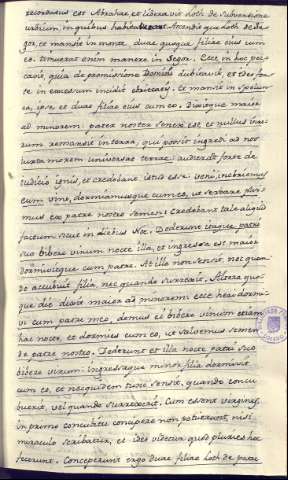 recordatus est Abrahae, et liberavit Loth de subversione
urbium in quibus habitaverat. Ascendit que Loth de Se-
gor, et mansit in monte, duae quoque filiae eius cum
eo. timuerat enim manere in Segor. Ecce in hoc pec-
cavit, quia de promissione Domini dubitavit, et ideo for-
te in excessum incidit ebrietatis. et mansit in spelun-
ca, ipse, et duae filiae eius cum eo. Dixitque maior
ad minorem: pater noster senex est, et nullus viro-
rum remansit in terra, qui possit ingredi ad nos
iuxta morem universae terrae: audierat forte de
iudicio ignis, et credebant istud esse. veni, inebriemus
eum vino, dormiamusque cum eo, ut servare possi-
mus ex patre nostro semen: credebant tale aliquid
factum sicut in diebus Noe. Dederunt itaque patri
suo bibere vinum nocte illa, et ingressa est maior
dormivitque cum patre. At ille non sensit, nec quan-
do accubuit filia, nec quando surrexit. Altera quo-
que die dixit maior ad minorem: ecce heri dormi-
vi cum patre meo, demus ei bibere vinum etiam
hac nocte, et dormies cum eo, ut salvemus semen
de patre nostro. Dederunt et illa nocte patri suo
bibere vinum: ingressaque minor filia dormivit
cum eo, et ne quidem tunc sensit, quando concu-
buerit, vel quando surrexerit. Cum essent virgines,
in primo concubitu concipere non potuerunt, nisi
miraculo scribatur, et ideo videtur quod pluries hoc
fecerunt. Conceperunt ergo duae filiae Loth de patre